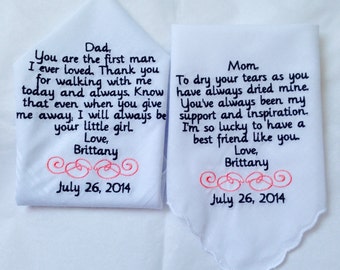 Dad,
You are the first man
I ever loved. Thank you
for walking with me
today and always. Know
that even when you give
me away, I will always be
your little girl.
Love,
Brittany
July 26, 2014
Mom,
To dry your tears as you
have always dried mine.
You've always been my
support and inspiration.
I'm so lucky to have a
best friend like you.
Love,
Brittany
July 26, 2014